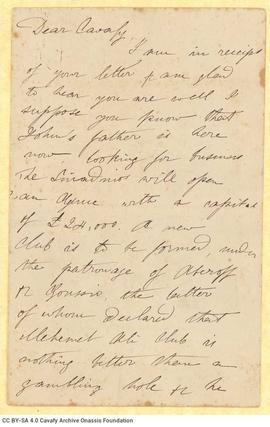 Dear Cavafy,
I am in receipt
of your letter & am glad
to hear you are well I
suppose you know that
John's father is here
now looking for business
The will open
an with a capital
of £24,000. A new
Club is to be formed, under
the patronage of Averoff
& Roussis, the latter
of whom declared that
Mehemet Ali Club is
nothing better than a
gambling hole & he
CC BY-SA 4.0 Cavafy Archive Onassis Foundation